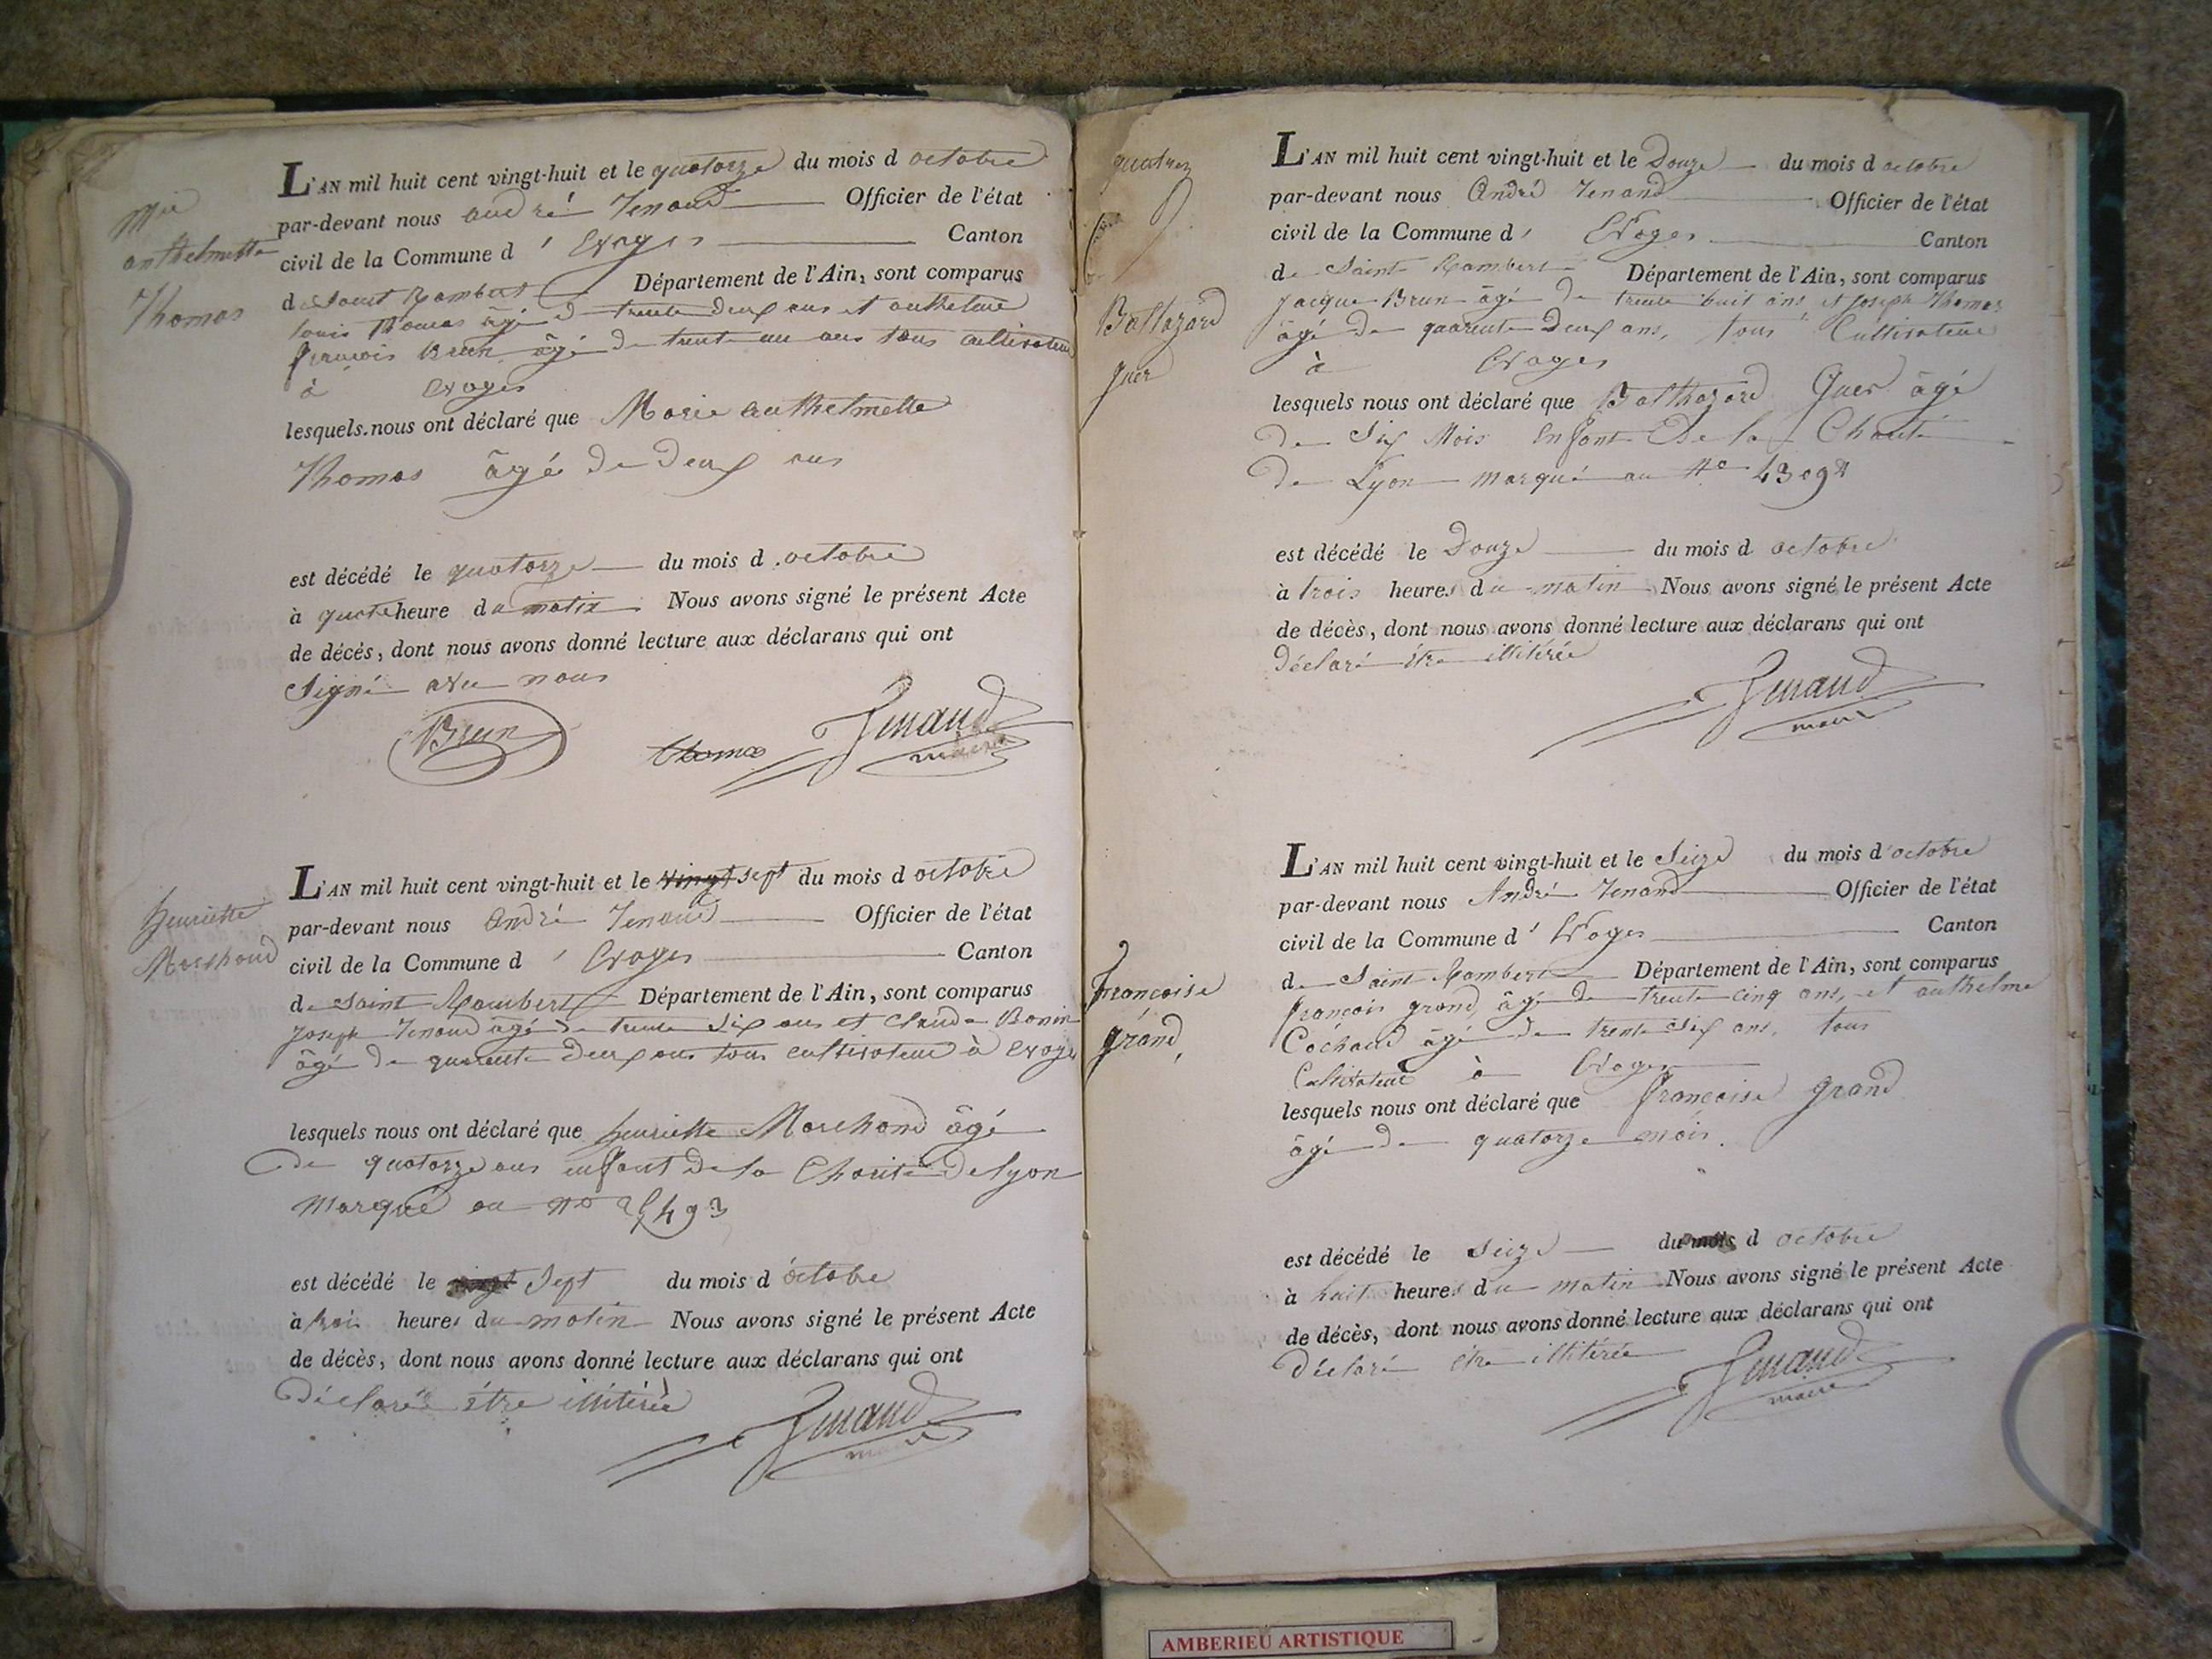 Mie
anthelmette
Thomas
L'AN mil huit cent vingt-huit et le quatorze du mois d octobre
par-devant nous andré Tenand Officier de l'état
civil de la Commune d ' Evoges Canton
de Saint Rambert Département de l'Ain, sont comparus
louis Thomas âgé de trente deux ans et anthelme
françois Brun âgé de trente un ans tous cultivateur
à Evoges
lesquels nous ont déclaré que Marie anthelmette
Thomas âgé de deux ans
est décédé le quatorze du mois d octobre
à quatre heure du matin Nous avons signé le présent Acte
de décès, dont nous avons donné lecture aux déclarans qui ont
Signé avec nous
Brun thomas Tenand
maire
henriette
Marchand
L'AN mil huit cent vingt-huit et le vingt sept du mois d octobre
par-devant nous André Tenand Officier de l'état
civil de la Commune d ' Evoges Canton
de Saint Rambert Département de l'Ain, sont comparus
Joseph Tenand âgé de trente Six ans et Claude Bonin
âgé de quarante deux ans tous cultivateur à Evoges
lesquels nous ont déclaré que henriette Marchand âgé
de quatorze ans enfant de la Charité de lyon
Marqué au no
est décédé le vingt Sept du mois d octobre
à troi heures du matin Nous avons signé le présent Acte
de décès, dont nous avons donné lecture aux déclarans qui ont
Déclaré être illitérée
Tenand
maire
Baltazard
quer
L'AN mil huit cent vingt-huit et le Douze du mois d octobre
par-devant nous André Tenand Officier de l'état
civil de la Commune d ' Evoges Canton
de Saint Rambert Département de l'Ain, sont comparus
Jacque Brun âgé de trente huit ans et joseph Thomas
âgé de quarente Deux ans, tous Cultivateur
à Evoges
lesquels nous ont déclaré que Balthazard Quer âgé
De Six Mois Enfant De la Charité
De Lyon marqué au No
est décédé le Douze du mois d octobre
à trois heures du matin Nous avons signé le présent Acte
de décès, dont nous avons donné lecture aux déclarans qui ont
Déclaré être illitérée
Tenand
maire
francoise
grand,
L'AN mil huit cent vingt-huit et le Seize du mois d'octobre
par-devant nous André Tenand Officier de l'état
civil de la Commune d ' Evoges Canton
de Saint Rambert Département de l'Ain, sont comparus
françois grand, âgé de trente cinq ans, et anthelme
Cochand âgé de trente Six ans, tous
Cultivateur à Evoges
lesquels nous ont déclaré que francoise grand
âgé de quatorze mois.
est décédé le Seize du mois d octobre
à huit heures du matin Nous avons signé le présent Acte
de décès, dont nous avons donné lecture aux déclarans qui ont
Déclaré être illitérée
Tenand
maire
AMBERIEU ARTISTIQUE